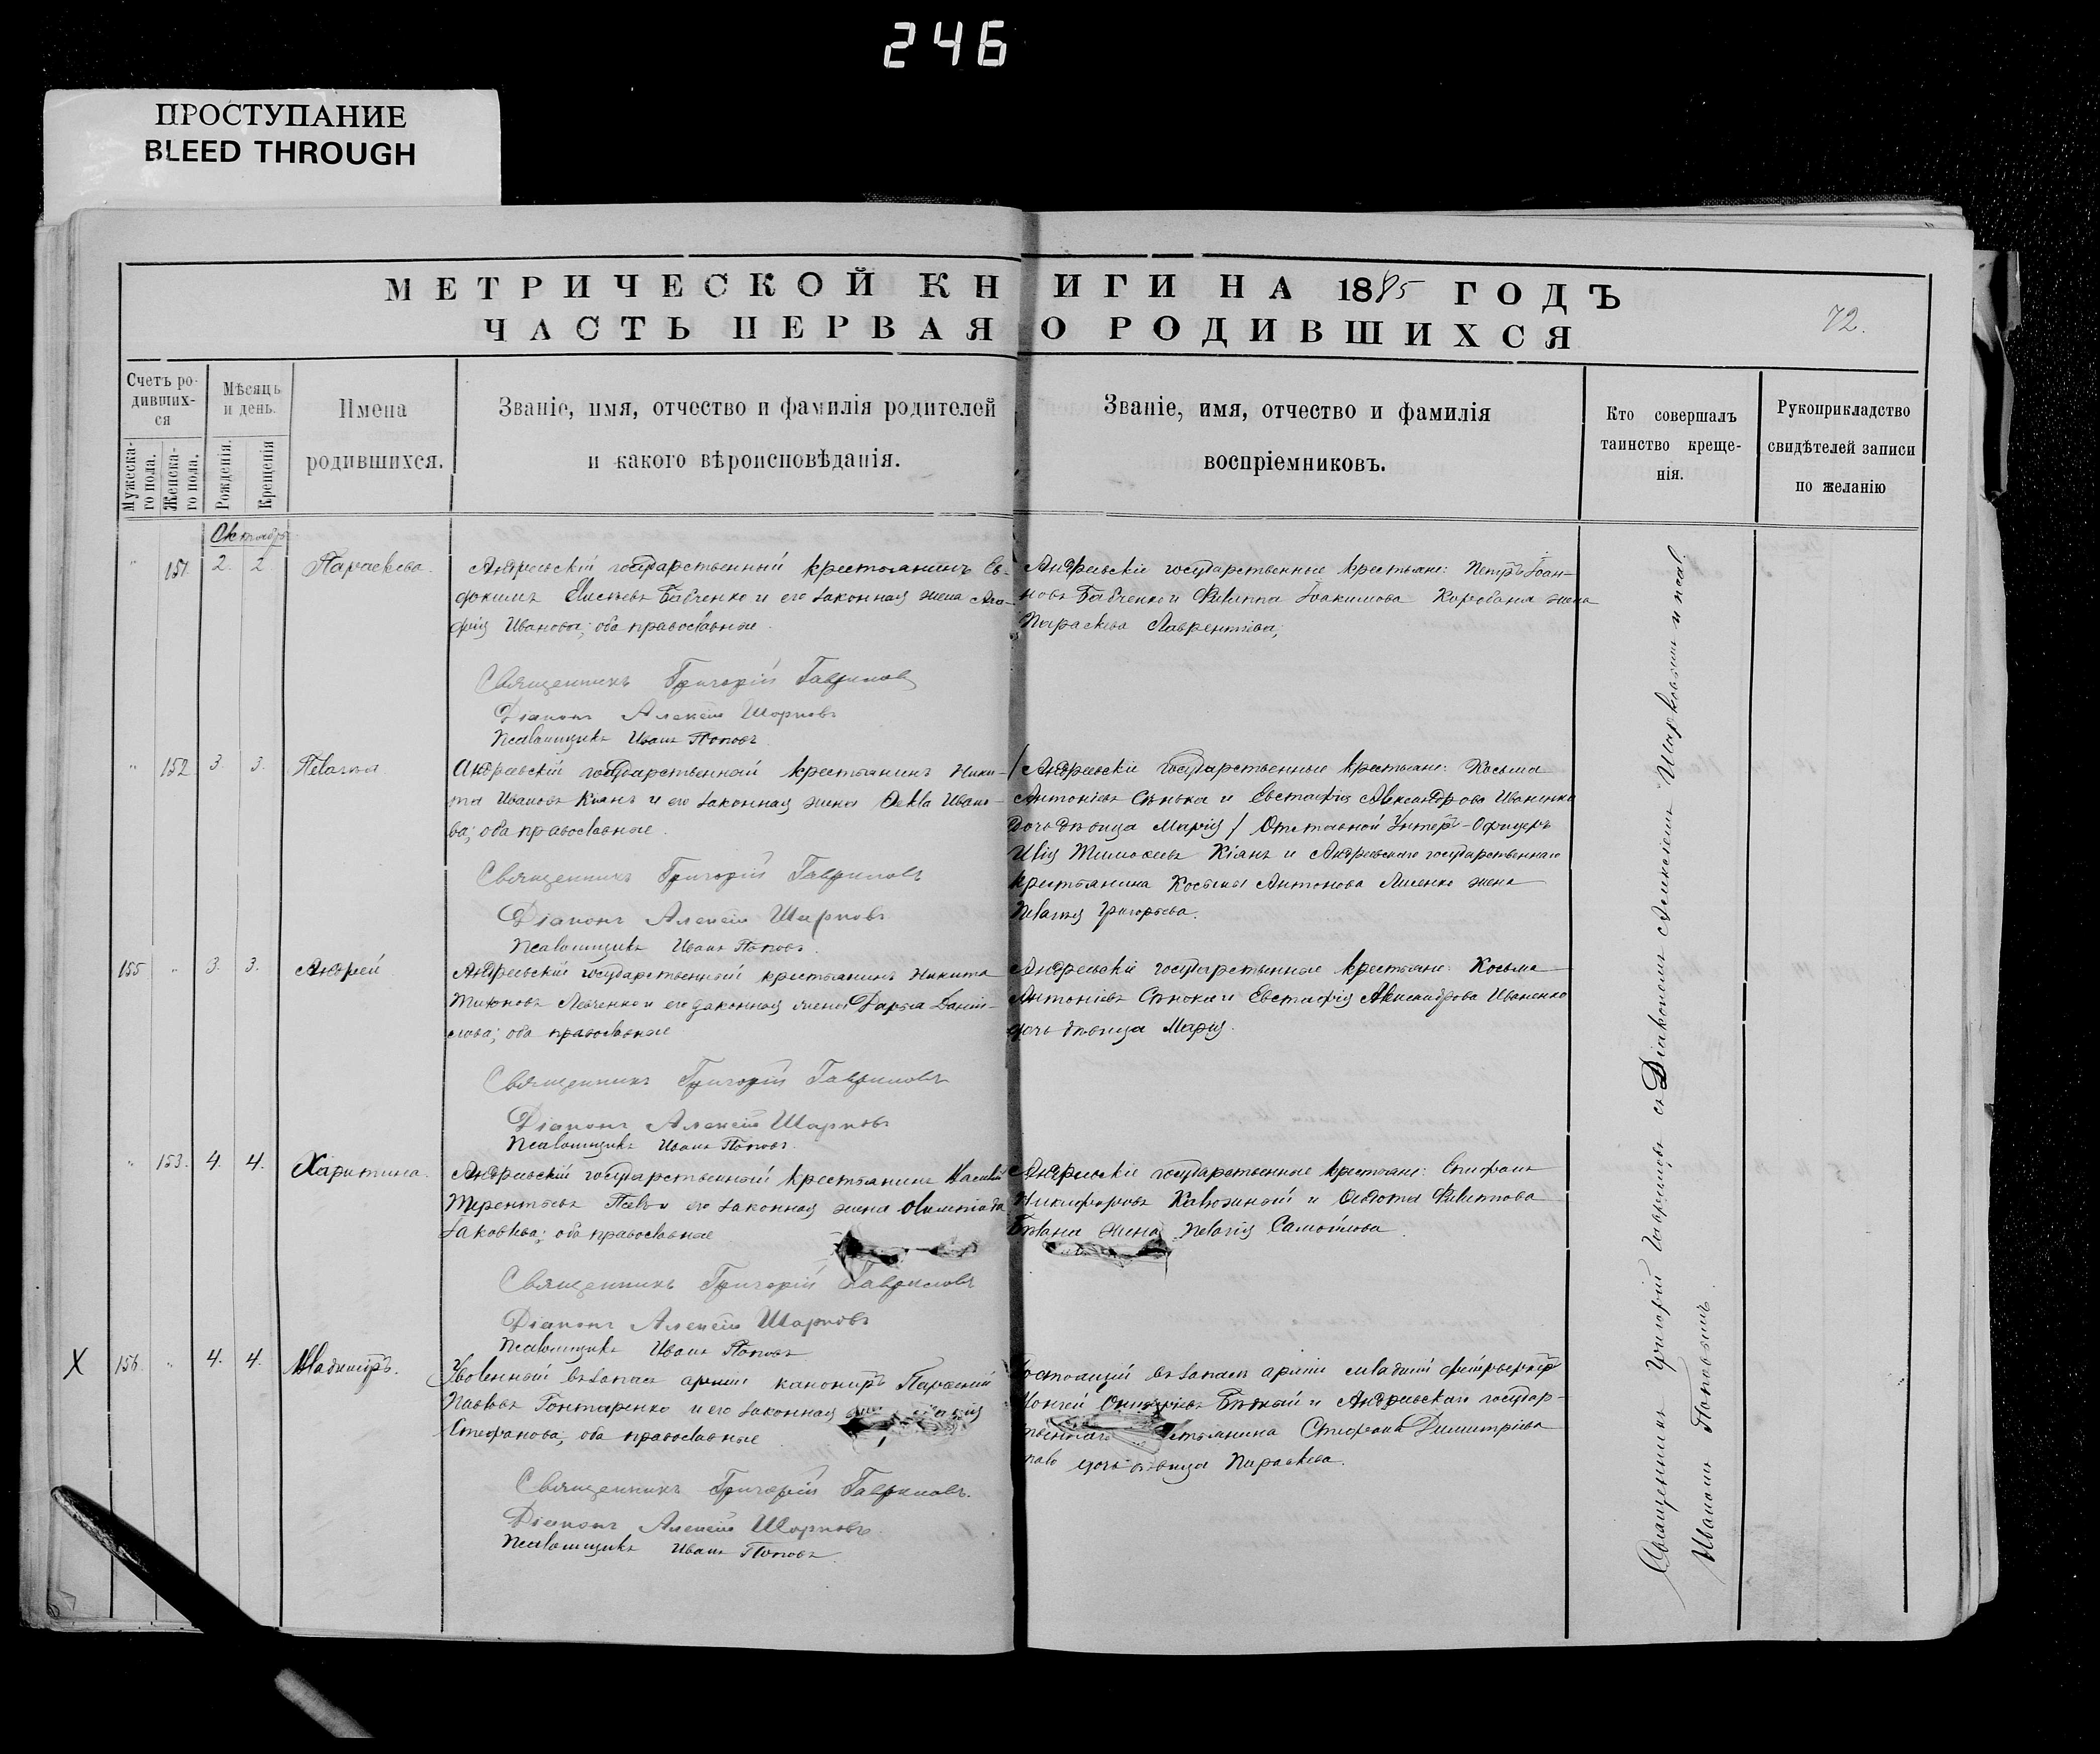 246
ПРОСТУПАНИЕ
BLEED THROUGH
МЕТРИЧЕСКОЙ КНИГИ НА 1885 ГОДЪ
ЧАСТЬ ПЕРВАЯ О РОДИВШИХСЯ
72.
Счетъ ро-
дивших-
ся
Мужеска-
го пола.
Женска-
го пола.
Мѣсяцъ
и день.
Рожденія.
Крещенія
Имена
родившихся.
Званіе, имя, отчество и фамилія родителей
и какого вѣроисповѣданія.
Званіе, имя, отчество и фамилія
воспріемниковъ.
Кто совершалъ
таинство креще-
нія.
Рукоприкладство
свидѣтелей записи
по желанію
Октябрь
" 151. 2. 2. Параскева.
Андреевскій государственный крестьянинъ Ев-
докимъ Елисѣевъ Бабченко и его законная жена Ага-
фія Иванова; оба православные.
Андреевскіе государственные крестьяне: Петръ Іоан-
новъ Бабченко и Филиппа Іоакимова жена
Параскева Лаврентіева;
Священникъ Григорій Гавриловъ
Діаконъ Алексій Шарковъ
Псаломщикъ Иванъ Поповъ
" 152. 3. 3. Пелагія
Андреевскій государственный крестьянинъ Ники-
та Ивановъ Кіянъ и его законная жена Ѳекла Ивано-
ва; оба православные.
Андреевскіе государственные крестьяне: Косьма
Антоніевъ Сѣнька и Евстафія Александрова Иваненко
дочь дѣвица Марія / Отставной Унтеръ-Офицеръ
Илія Тимоѳеевъ Кіянъ и Андреевскаго государственнаго
крестьянина Косьмы Антонова Лисенко жена
Пелагія Григорьева.
Священникъ Григорій Гавриловъ
Діаконъ Алексій Шарковъ
Псаломщикъ Иванъ Поповъ.
155 " 3. 3. Андрей
Андреевскій государственный крестьянинъ Никита
Левченко и его законная жена Дарья Даніи-
лова; оба православные
Андреевскіе государственные крестьяне: Косьма
Антоніевъ Сѣнька и Евстафія Александрова Иваненко
дочь дѣвица Марія.
Священникъ Григорій Гавриловъ
Діаконъ Алексій Шарковъ
Псаломщикъ Иванъ Поповъ.
" 153. 4. 4. Харитина.
Андреевскій государственный крестьянинъ Василій
Терентьевъ и его законная жена Олимпіада
Іаковлева; оба православные
Андреевскіе государственные крестьяне: Епифанъ
Никифоровъ и Ѳедота Филиппова
жена Пелагія Самойлова.
Священникъ Григорій Гавриловъ
Діаконъ Алексій Шарковъ
Псаломщикъ Иванъ Поповъ
X 156 " 4. 4. Владиміръ.
Уволенный въ запасъ арміи канониръ Парѳеній
Павловъ Гонтаренко и его законная
Стефанова; оба православные
въ запасѣ арміи младшій фейерверкеръ
и Андреевскаго государ-
Стефана Димитріева
дочь дѣвица Параскева.
Священникъ Григорій Гавриловъ.
Діаконъ Алексій Шарковъ.
Псаломщикъ Иванъ Поповъ.
Священникъ Григорій Гавриловъ съ Діакономъ Алексіемъ Шарковымъ и псал.
Иваномъ Поповымъ.